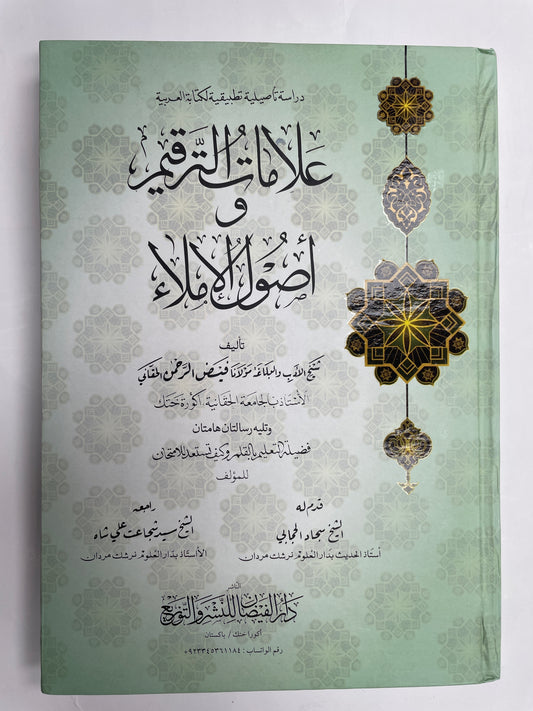 دراسة تأصيلية تطبيقية لكتابة العربية
علامات الترقيم
و
أصول الإملاء
تأليف
شيخ الأدب والبلاغة مولانا فيض الرحمن الحقاني
الأستاذ بالجامعة الحقانية، أكورة ختك
وتليه رسالتان هامتان
فضيلة التعليم بالقلم وكيف تستعد للامتحان
للمؤلف
قدم له
الشيخ سجاد الحجابي
أستاذ الحديث بدار العلوم نرشك مردان
راجعه
الشيخ سيد شجاعت علي شاه
الأستاذ بدار العلوم نرشك مردان
الناشر
دار الفيضان للنشر والتوزيع
أكورا ختك / باكستان
رقم الواتساب : ٩٢٣٣٤٥٣٦١١٨٤+